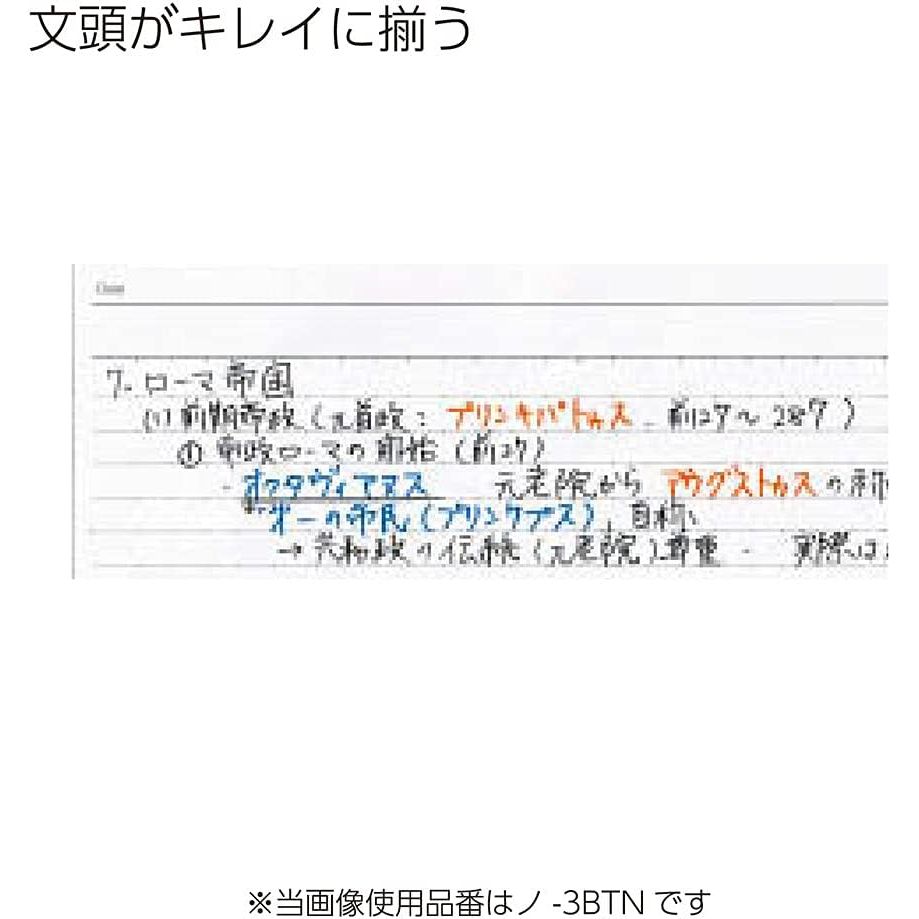 文頭がキレイに揃う
7. ローマ帝国
(1) 前期帝政 (元首政: プリンキパトゥス 前27～284)
① 帝政ローマの開始 (前27)
オクタヴィアヌス 元老院から アウグストゥス の称
第一の市民 (プリンケプス) 自称
→ 共和政の伝統 (元老院) 尊重 実際は
※当画像使用品番はノ-3BTNです